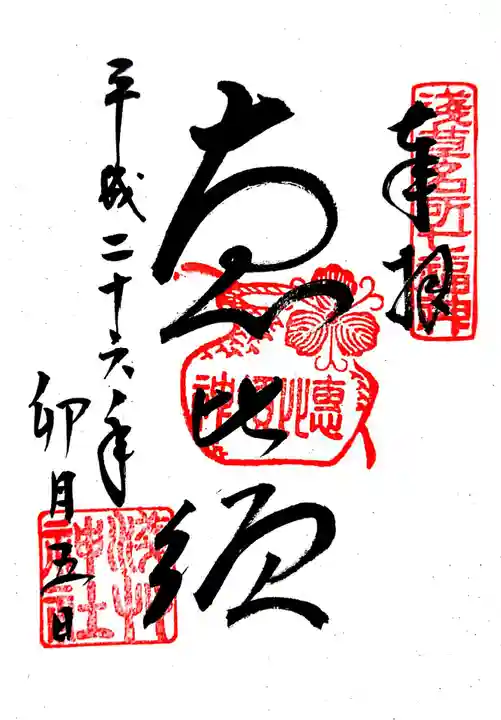 淺草名所七福神
奉拝
恵比須
惠比須神
平成二十六年
卯月五日
浅草神社